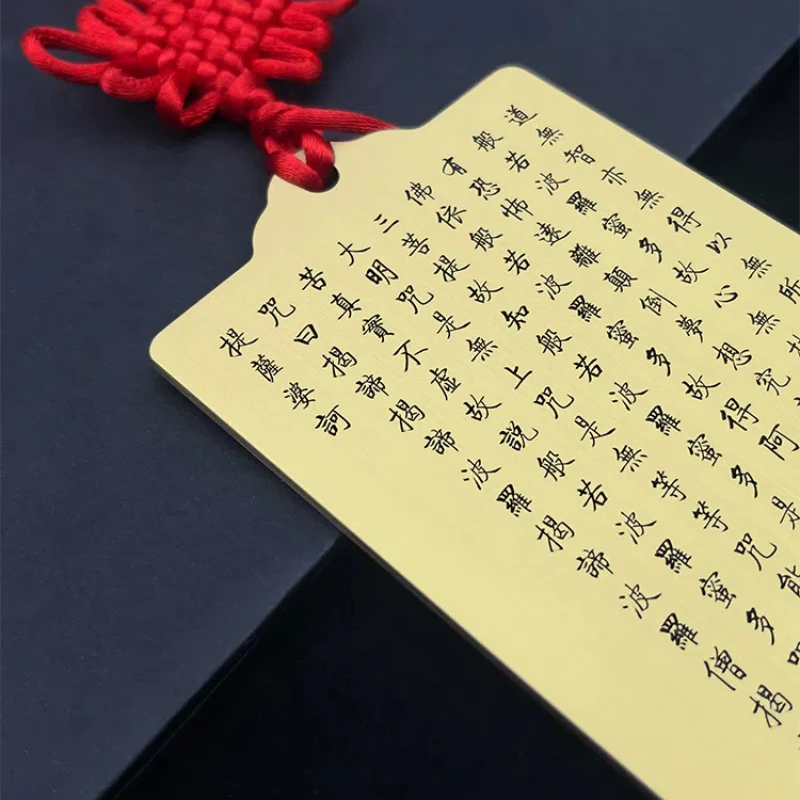 道無智亦無得以無所
般若波羅蜜多故心無
有恐怖遠離顛倒夢想究
佛依般若波羅蜜多故得阿
三菩提故知般若波羅蜜多是
大明咒是無上咒是無等等咒能
苦真實不虛故說般若波羅蜜多咒
咒曰揭諦揭諦波羅揭諦波羅僧揭
提薩婆訶